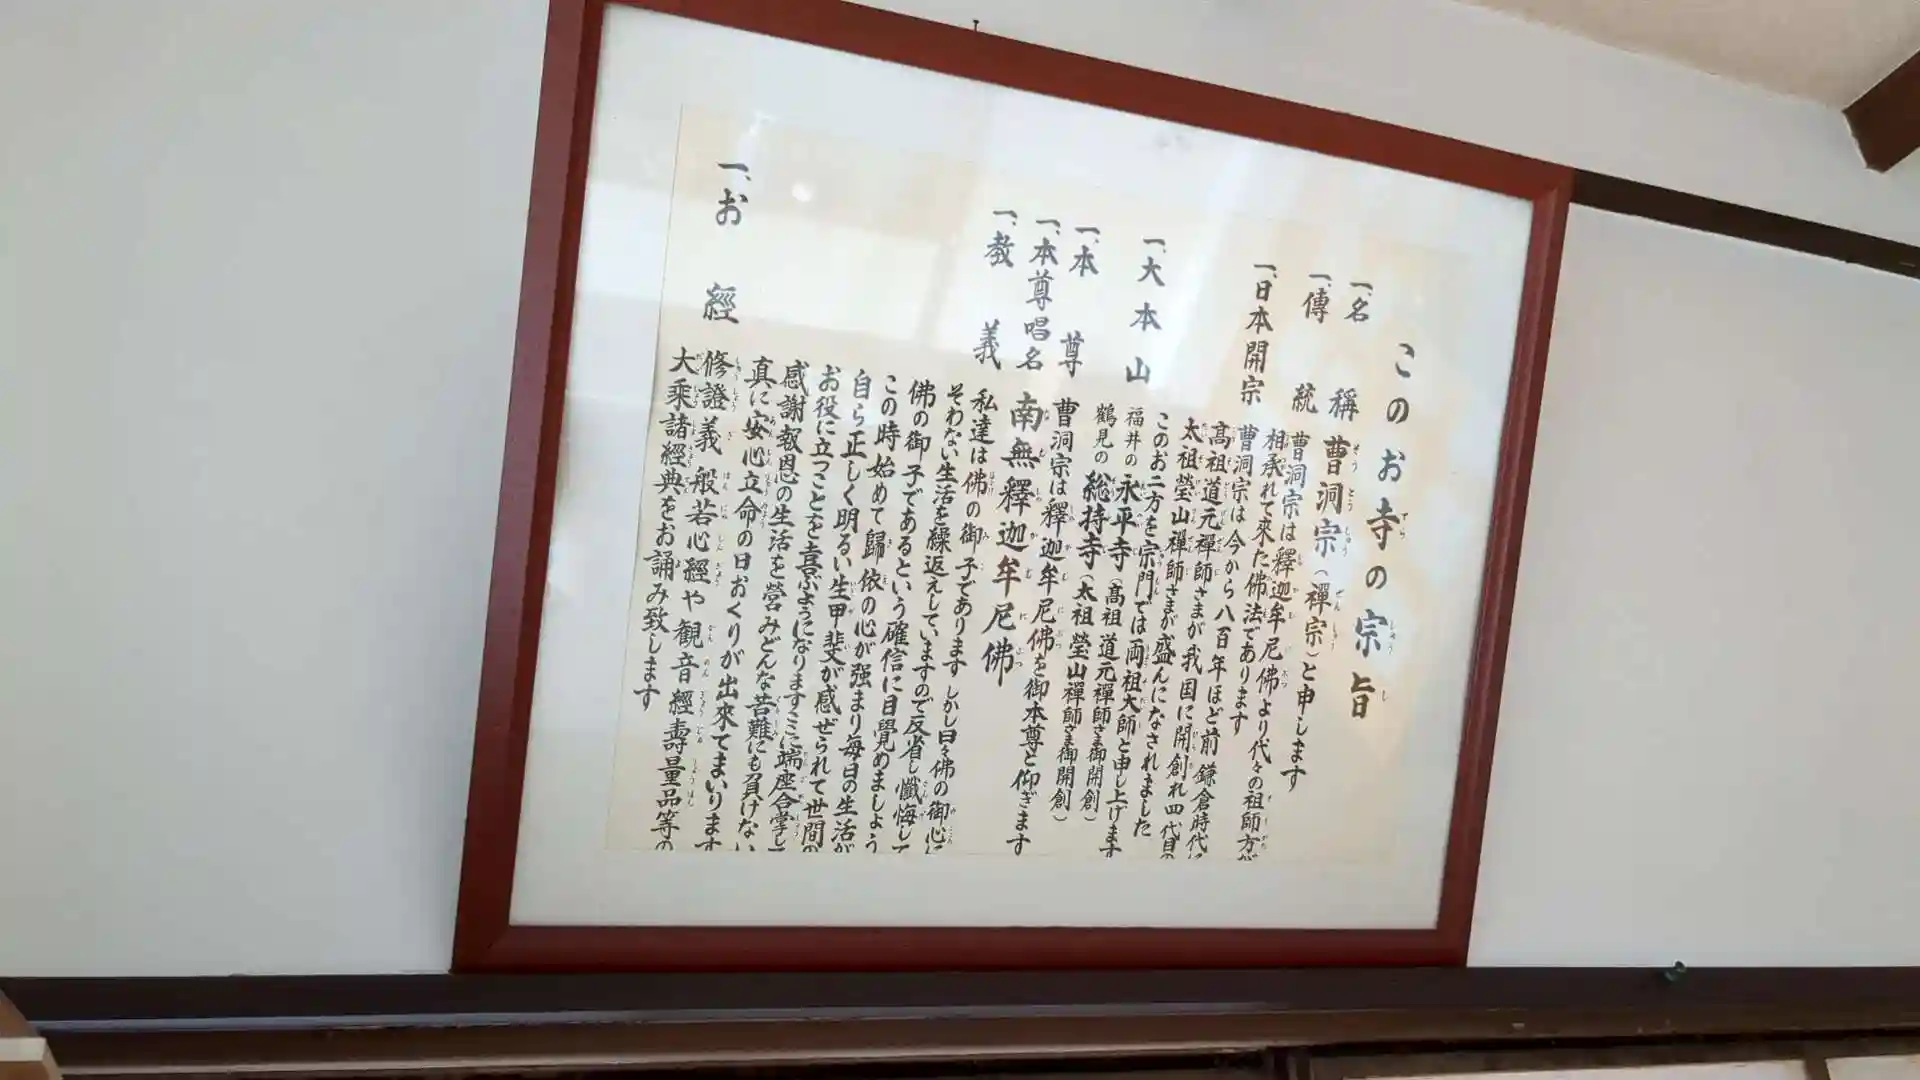 このお寺の宗旨
一、名稱 曹洞宗(禪宗)と申します
一、傳統 曹洞宗は釋迦牟尼佛より代々の祖師方が
相承れて來た佛法であります
一、日本開宗 曹洞宗は今から八百年ほど前鎌倉時代に
高祖道元禪師さまが我国に開創れ四代目の
太祖瑩山禪師さまが盛んになされました
このお二方を宗門では両祖大師と申し上げます
一、大本山 福井の永平寺(高祖道元禪師さま御開創)
鶴見の総持寺(太祖瑩山禪師さま御開創)
一、本尊 曹洞宗は釋迦牟尼佛を御本尊と仰ぎます
一、本尊唱名 南無釋迦牟尼佛
一、教義 私達は佛の御子であります しかし日々佛の御心に
そわない生活を繰返えしていますので反省し懺悔して
佛の御子であるという確信に目覺めましよう
この時始めて歸依の心が强まり毎日の生活が
自ら正しく明るい生甲斐が感ぜられて世間の
お役に立つことを喜ぶようになります ここに端座合掌して
感謝報恩の生活を営みどんな苦難にも負けない
真に安心立命の日おくりが出來てまいります
一、お經 修證義 般若心經や観音經壽量品等の
大乘諸經典をお誦み致します